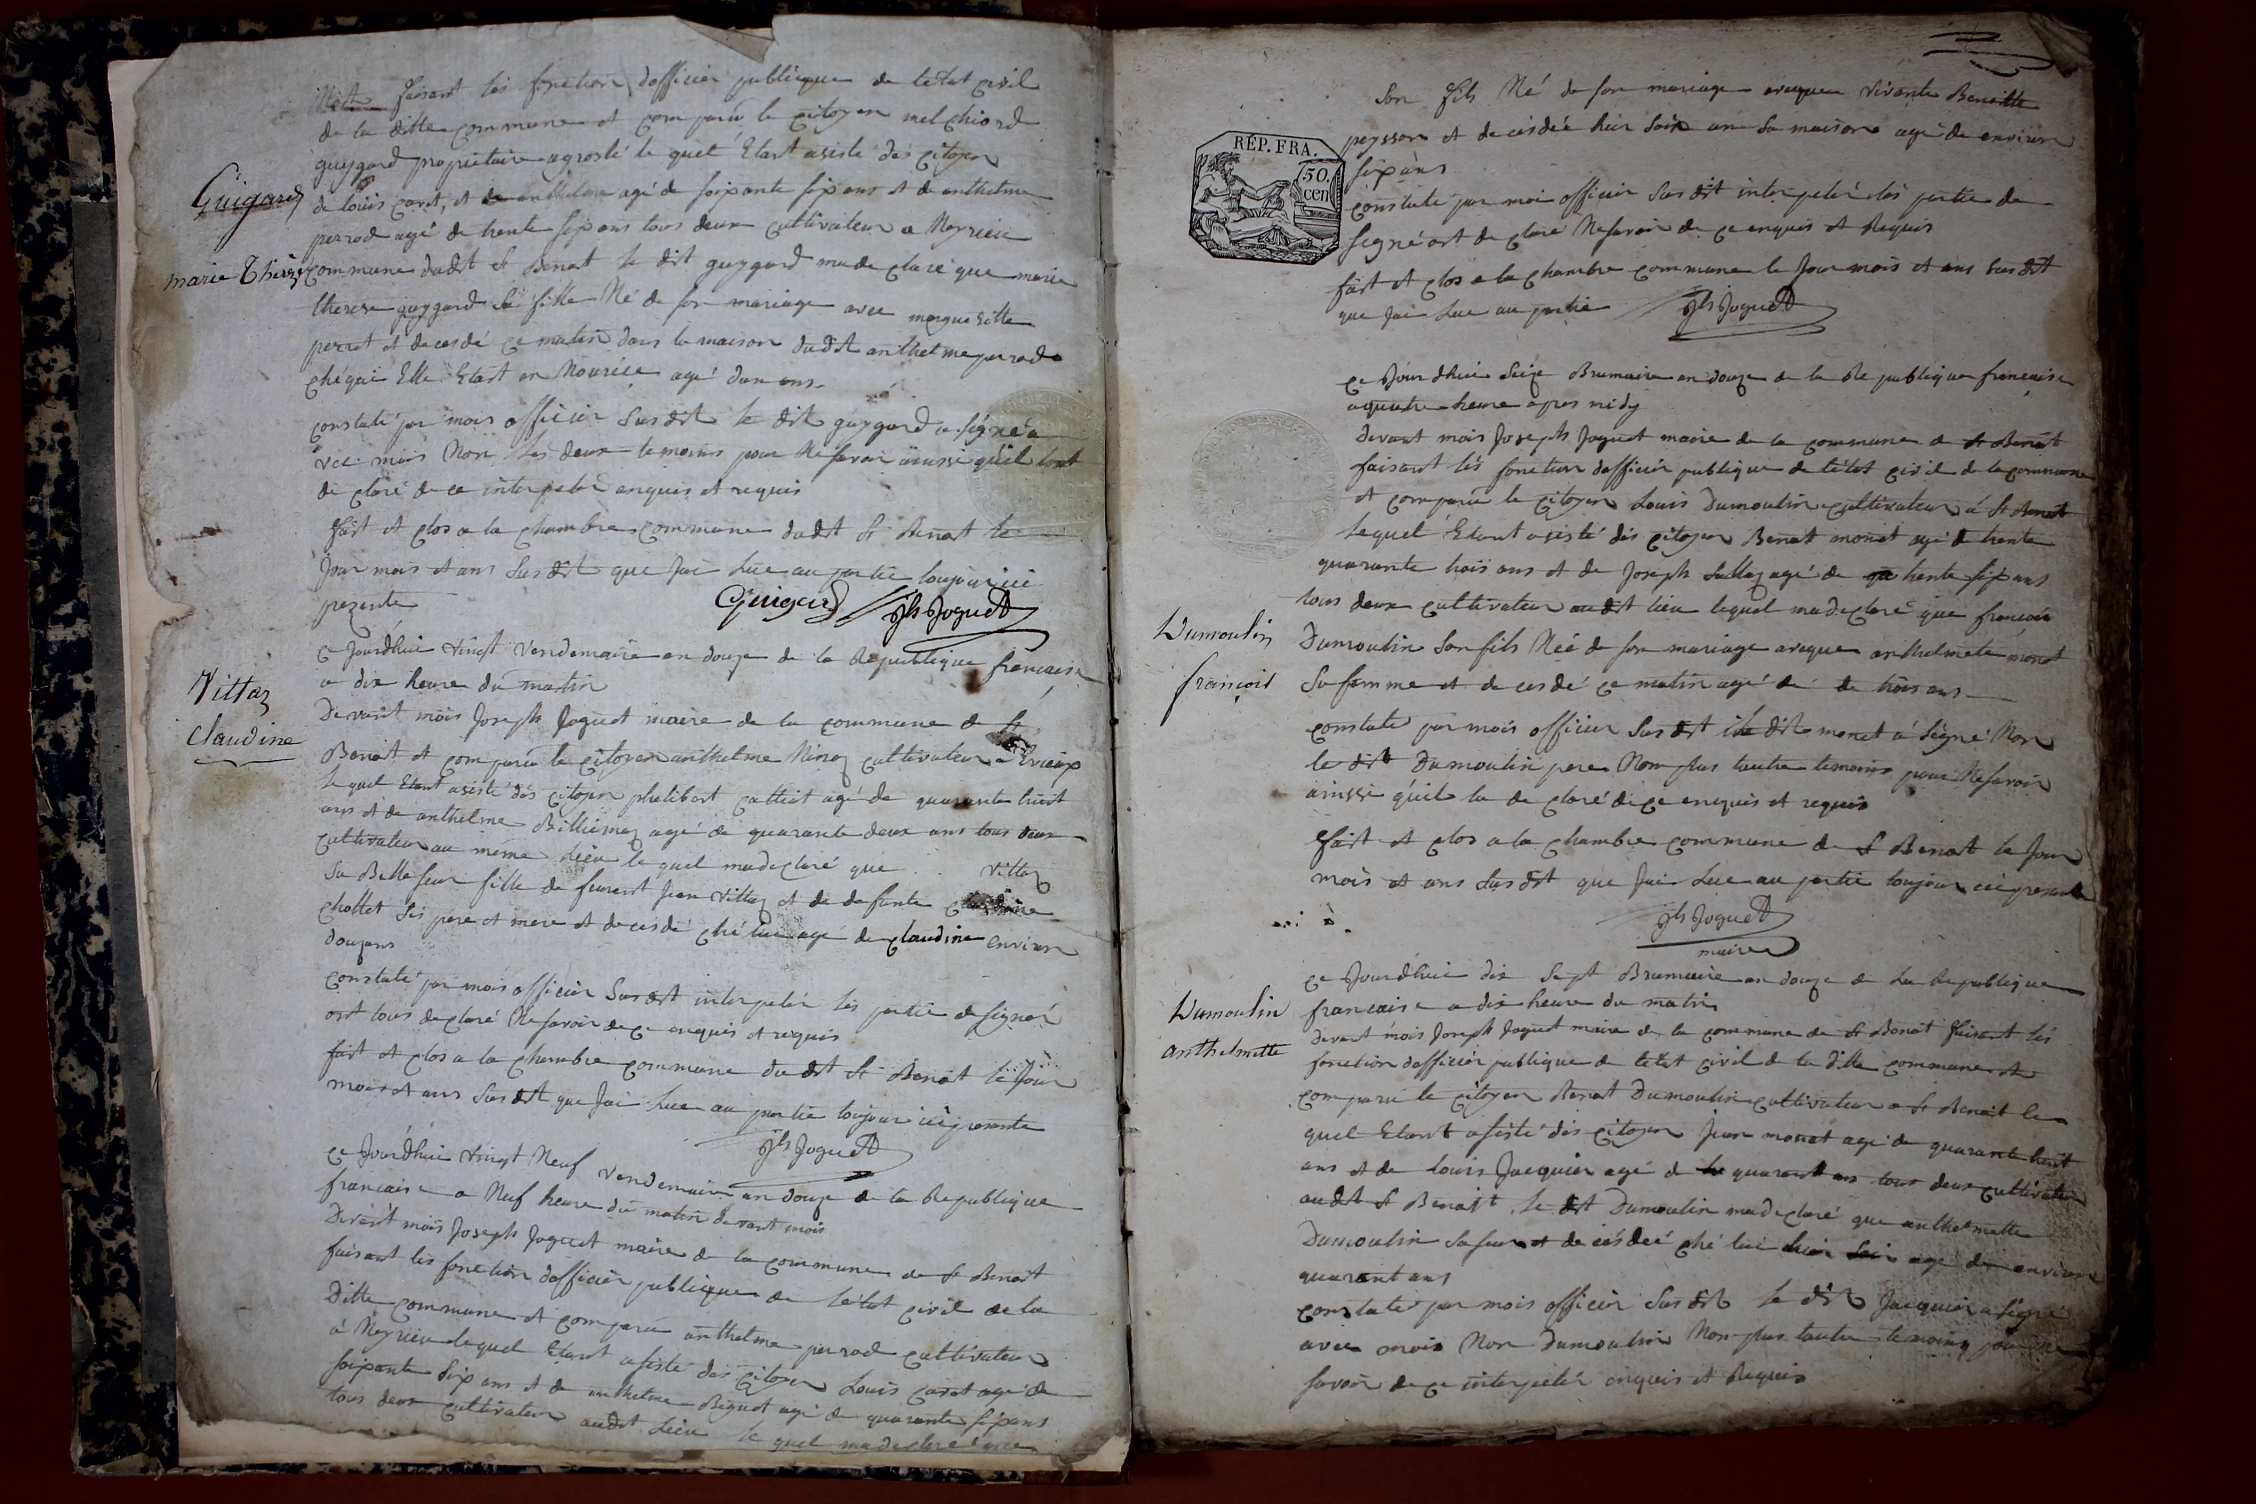 faisant les fonction dofficier publique de letat civil
de la ditte commune et comparu le citoyen melchiord
guygard propriétaire agroslé le quel Etant asisté des Citoyen
de louis caret, et agé de soixante six ans et de anthelme
perrod agé de trente six ans tous deux cultivateur a Meyrieu
Guigard
marie Thérèze
commune dudit St Benoit le dit guygard ma de claré que marie
therese guygard sa fille Né de son mariage avec margueritte
perret et decesdé ce matin dans la maison dudit anthelme perrod
ché qui Elle Etant en Nourice agé dun ans
constaté par mois officier Susdit le dit guygard a signé a
vec mois Non les deux temoins pour Ne savoir ainssi quil lont
de claré de ce interpelér enquis et requis
fait et clos a la chambre commune dudit St Benoit le
Jour mois et ans Susdit que Jai Lue au partie toujour ici
prezente
Guigard Jh Joguet
ce Jourdhui vingt Vendemaire an douze de la Republique francaise
a dix heure du matin
Vittaz
claudine
Devant mois Joseph Joguet maire de la commune de St
Benoit et comparu le citoyen anthelme Ninoz cultivateur a Evieux
le quel Etant asisté des citoyen philibert cattiot agé de quarante huit
ans et de anthelme Billiemaz agé de quarante deux ans tous deux
cultivateur au même lieu le quel ma declaré que Vittaz
Sa Belle seur fille de feurent Jean Vittaz et de defunte claudine
chollet Ses pere et mere et decesdé ché lui agé de claudine environ
douzans
constaté par mois officier Susdit interpelér les partie de signér
ont tous declaré Ne savoir de ce enquis et requis
fait et clos a la chambre commune du dit St Benoit le Jour
mois et ans Susdit que Jai Lue au partie toujour ici presente
Jh Joguet
ce Jourdhui vingt Neuf vendemaire an douze de la Republique
francaise a Neuf heure du matin devant mois
Devant mois Joseph Joguet maire de la commune de St Benoit
faisant les fonction dofficier publique de letat civil de la
Ditte commune et comparu anthelme perrod cultivateur
a Meyrieu le quel Etant asisté des citoyen Louis caret agé de
soixante six ans et de anthelme Biguet agé de quarante six ans
tous deux cultivateur audit Lieu le quel ma declaré que
Son fils Né de son mariage avecque vivante Benoitte
peysson et decesdée hier soir an sa maison agé de environ
six ans
RÉP. FRA.
50.
cen
constaté par moi officier Susdit interpelér lés partie de
segné ont de claré Ne savoir de ce enquis et Requis
fait et clos a la chambre commune le Jour mois et ans Susdit
que Jai Lue au partie Jh Joguet
ce Jourdhui Seize Brumaire an douze de la Republique francaise
a quatre heure apres midy
Devant mois Joseph Joguet maire de la commune de St Benoit
faisant lés fonction dofficiér publique de létat civil de la commune
et comparu le citoyen Louis Dumoulin cultivateur á St Benoit
lequel Etant asisté dés citoyen Benoit monet agé de trente
quarante trois ans et de Joseph Sallaz agé de trente six ans
tous deux cultivateur audit lieu lequel ma declaré que francois
Dumoulin
françois
Dumoulin Son fils Née de son mariage avecque anthelmete monet
Sa femme et decesdé ce matin agé dé de trois ans
constaté par mois officier Susdit le dit monet á Ségné Non
le dit Dumoulin pere Non plus lautre temoins pour Ne savoir
ainssi quil la de claré de ce enquis et requis
Fait et clos a la chambre commune de St Benoit le Jour
mois et ans Susdit que Jai Lue au partie toujour ici presente
Jh Joguet
maire
ce Jourdhui dix Sept Brumaire an douze de La Republique
francaise a dix heure du matin
Dumoulin
anthelmette
devant mois Joseph Joguet maire de la commune de St Benoit faisant lés
fonction dofficiér publique de letat civil de la ditte commune et
comparu le citoyen Benoit Dumoulin cultivateur a St Benoit le
quel Etant asisté dés citoyen Jean monet agé de quarante huit
ans et de Louis Jacquier agé de quarant ans tous deux cultivateur
audit St Benoit le dit Dumoulin ma declaré que anthelmette
Dumoulin sa seur et decésdeé ché lui hier Soir agé de environ
quarant ans
constaté par mois officier Susdit le dit Jacquier a Ségné
avec mois Non Dumoulin Non plus lautre temoins pour ne
savoir de ce interpelér enquis et Requis